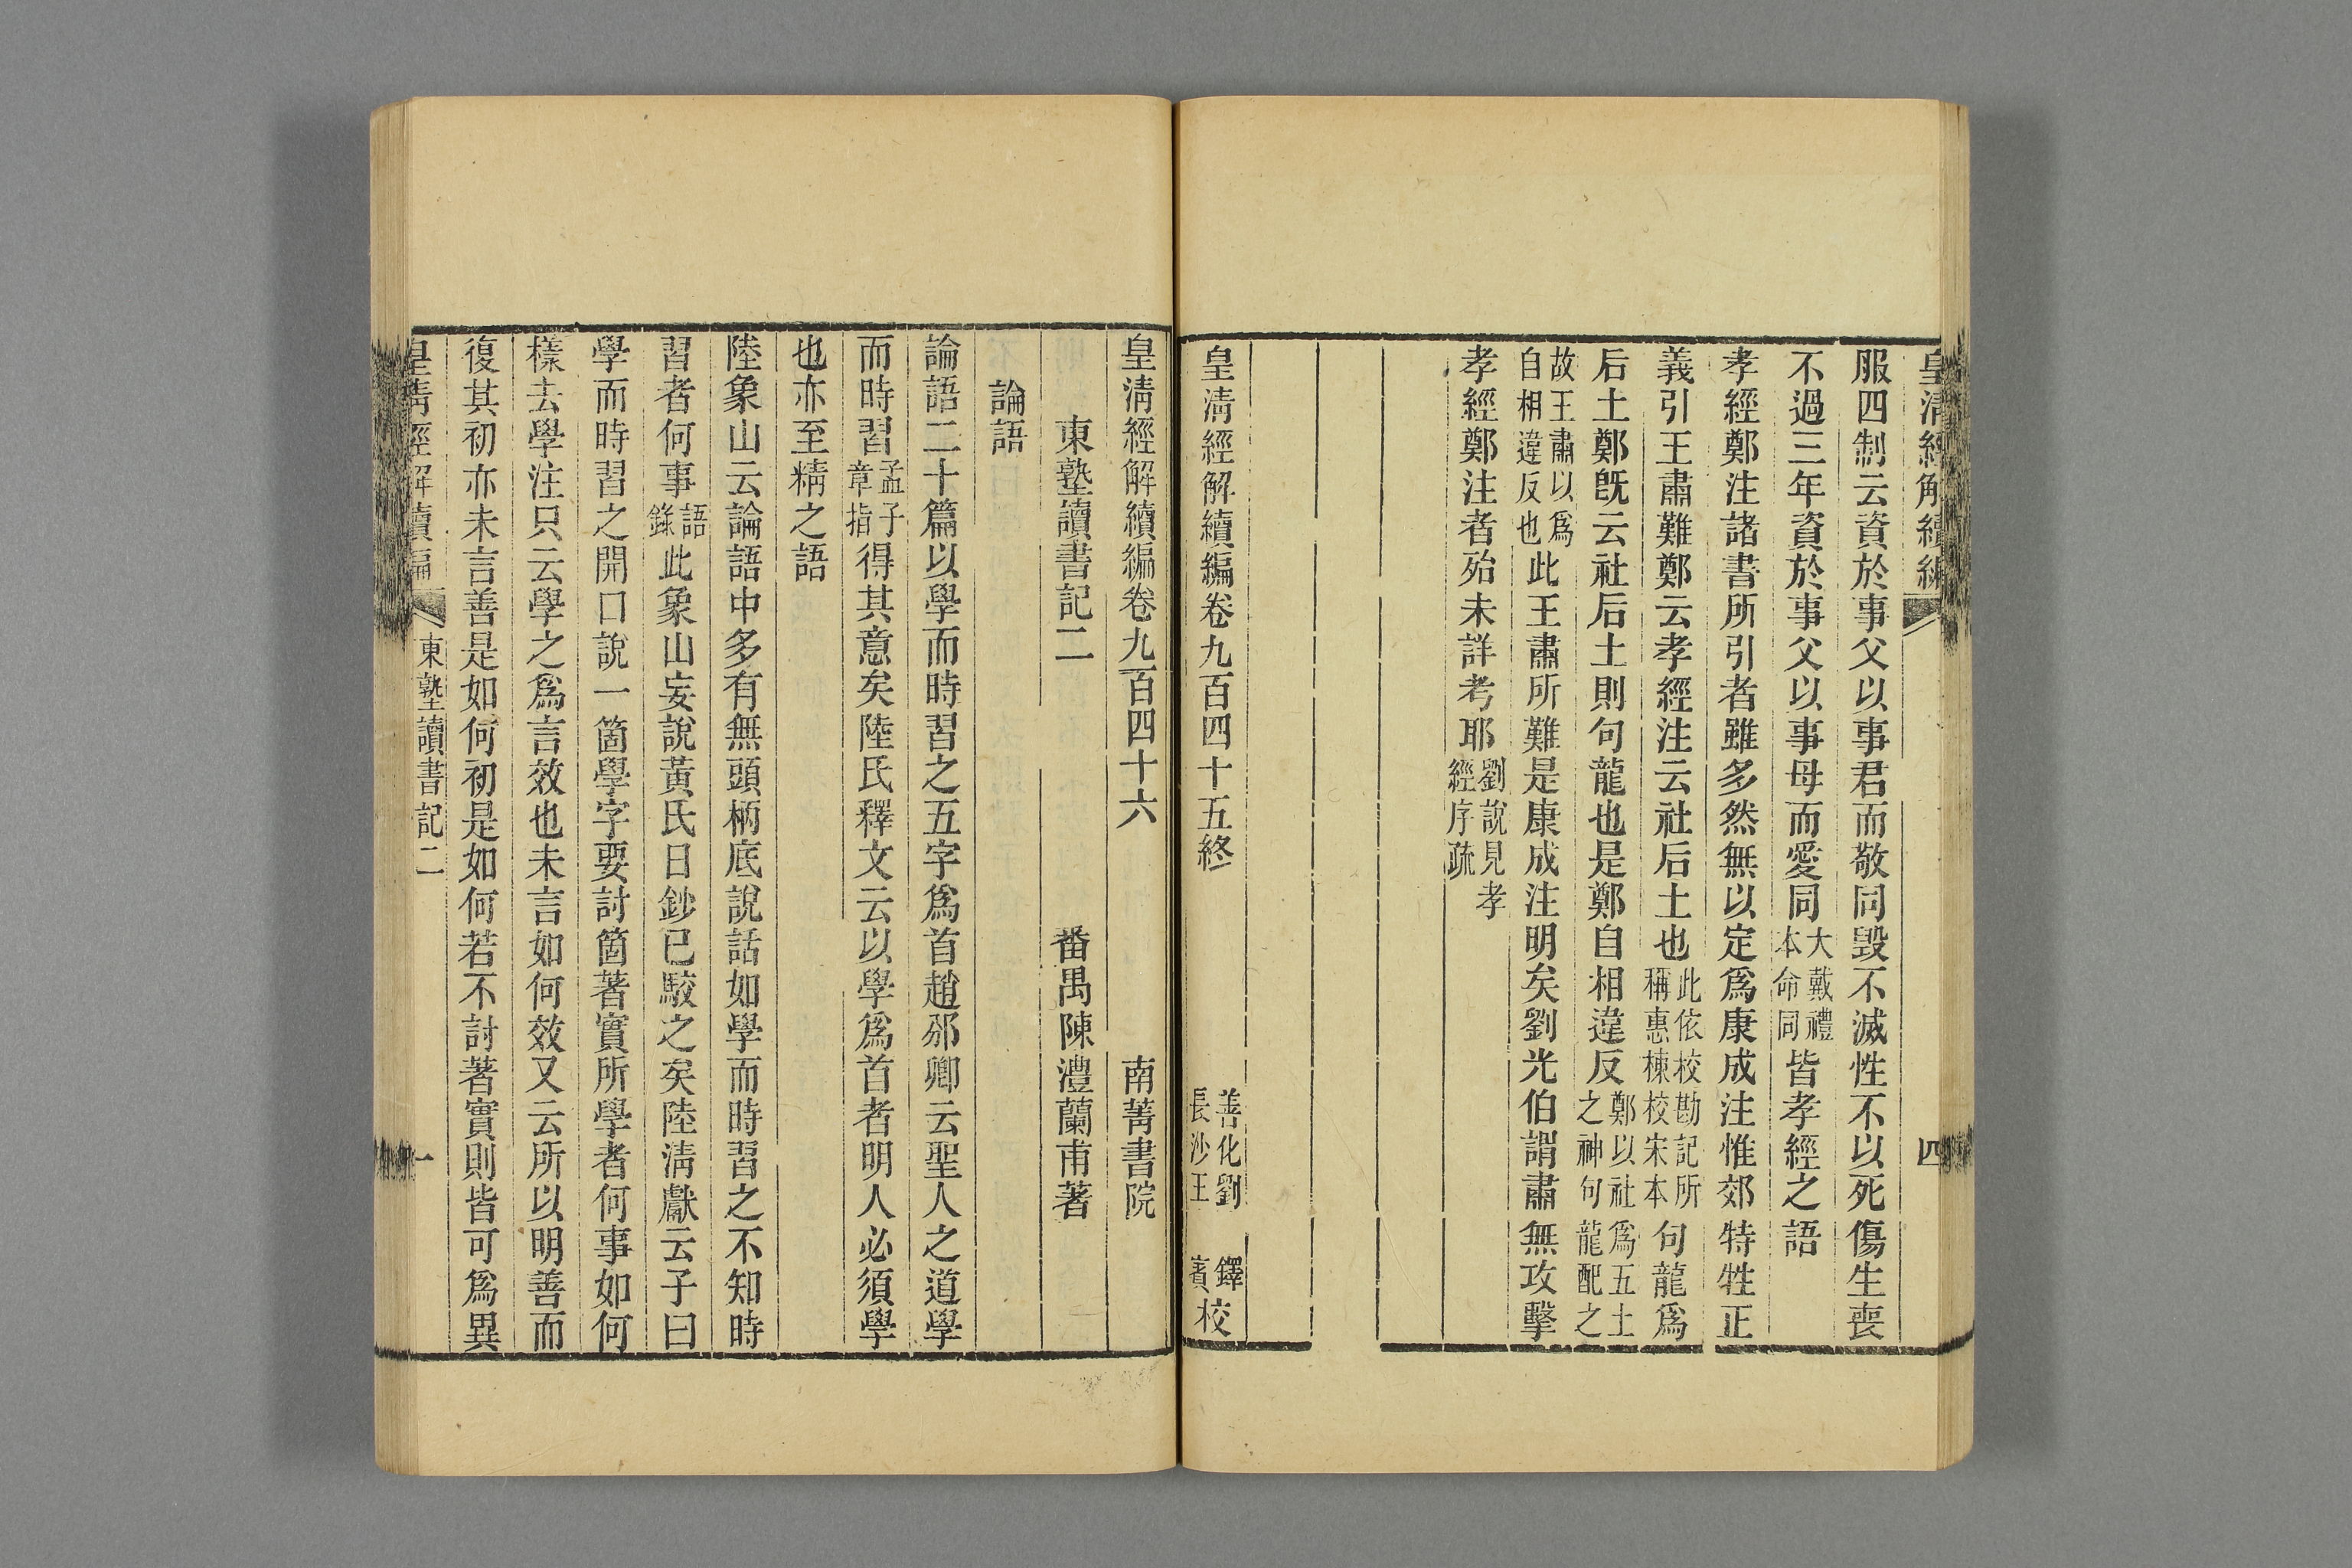 皇清經解續編
四
服四制云資於事父以事君而敬同毀不滅性不以死傷生喪
不過三年資於事父以事母而愛同大戴禮本命同皆孝經之語
孝經鄭注諸書所引者雖多然無以定爲康成注惟郊特牲正
義引王肅難鄭云孝經注云社后土也此依校勘記所稱惠棟校宋本句龍爲
后土鄭旣云社后土則句龍也是鄭自相違反鄭以社爲五土之神句龍配之
故王肅以爲自相違反也此王肅所難是康成注明矣劉光伯謂肅無攻擊
孝經鄭注者殆未詳考耶劉說見孝經序疏
皇淸經解續編卷九百四十五終
善化劉鐸
長沙王賓校
皇淸經解續編卷九百四十六
南菁書院
東塾讀書記二
番禺陳澧蘭甫著
論語
論語二十篇以學而時習之五字爲首趙邠卿云聖人之道學
而時習孟子章指得其意矣陸氏釋文云以學爲首者明人必須學
也亦至精之語
陸象山云論語中多有無頭柄底說話如學而時習之不知時
習者何事語錄此象山妄說黃氏日鈔已駮之矣陸淸獻云子曰
學而時習之開口說一箇學字要討箇著實所學者何事如何
樣去學注只云學之爲言效也未言如何效又云所以明善而
復其初亦未言善是如何初是如何若不討著實則皆可爲異
皇清經解續編
東塾讀書記二
一